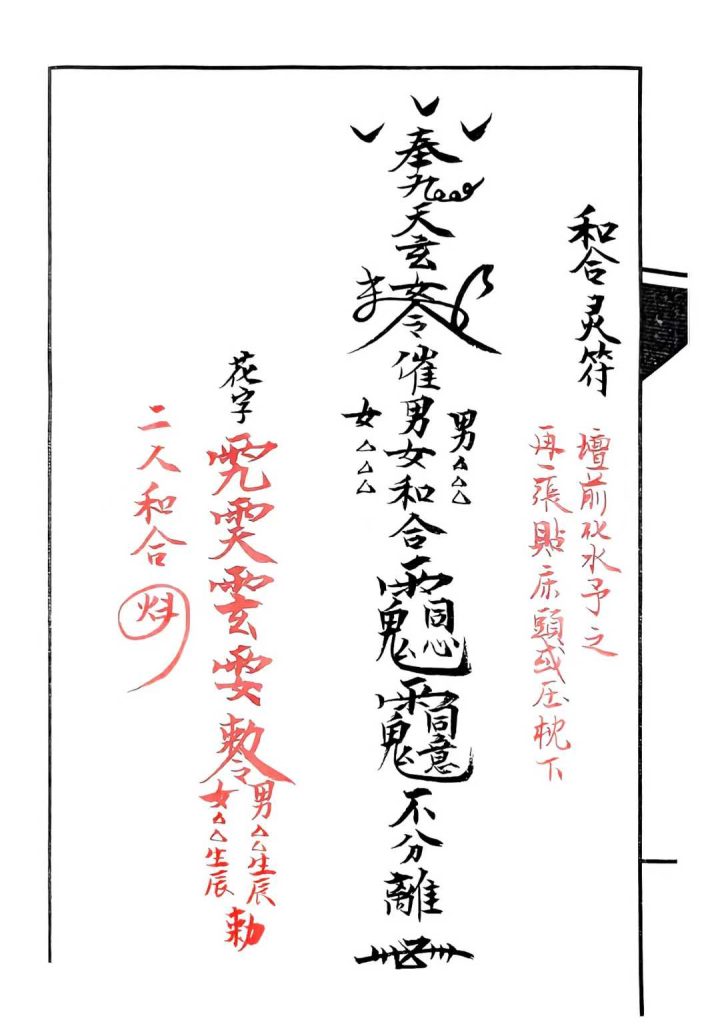 和合灵符
壇前化水予之
再一張貼床頭或压枕下
奉九天玄女令催男女和合
男△△△
女△△△
同心
同意
不分離
花字
敕令
男△△生辰
女△△生辰
勅
二人和合